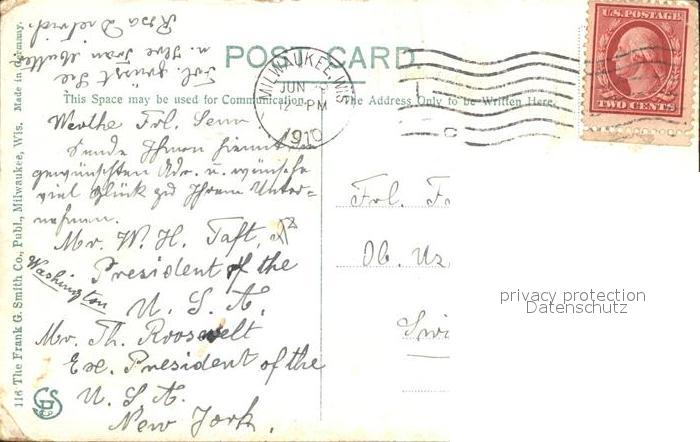 116 The Frank G. Smith Co., Publ., Milwaukee, Wis. Made in Germany.
POST CARD
This Space may be used for Communication. The Address Only to be Written Here.
MILWAUKEE, WIS
JUN
12 - PM
1910
U.S. POSTAGE
TWO CENTS
Werthe Frl. Senn
Sende Ihnen hiermit die
gewünschten Adr. u. wünsche
viel Glück zu Ihrem Unter-
nehmen.
Mr. W. H. Taft,
President of the
Washington
U. S. A.
Mr. Th. Roosevelt
Exe. President of the
U. S. A.
New York.
Frl. grüsst Sie
u. Ihre Frau Mutter
Rosa Dietrich.
Frl. F
Ob. Uz
Swi
privacy protection
Datenschutz